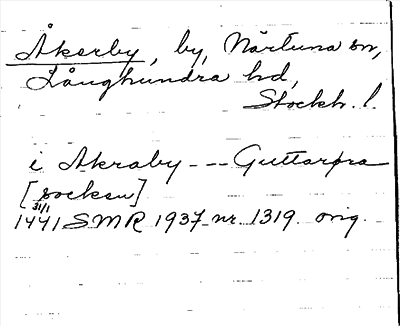 Åkerby, by, Närtuna sn,
Långhundra hd,
Stockh. l.
i Akraby --- Guttarpra
[socken]
31/1
1441 SMR 1937 nr. 1319. orig.